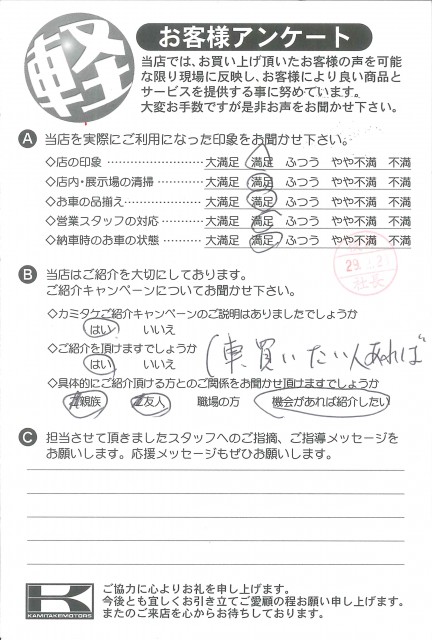 軽
お客様アンケート
当店では、お買い上げ頂いたお客様の声を可能
な限り現場に反映し、お客様により良い商品と
サービスを提供する事に努めています。
大変お手数ですが是非お声をお聞かせ下さい。
A 当店を実際にご利用になった印象をお聞かせ下さい。
◇店の印象 …………………… 大満足 満足 ふつう やや不満 不満
◇店内・展示場の清掃 ………… 大満足 満足 ふつう やや不満 不満
◇お車の品揃え ……………… 大満足 満足 ふつう やや不満 不満
◇営業スタッフの対応 ………… 大満足 満足 ふつう やや不満 不満
◇納車時のお車の状態 ………… 大満足 満足 ふつう やや不満 不満
社長
B 当店はご紹介を大切にしてあります。
ご紹介キャンペーンについてお聞かせ下さい。
◇カミタケご紹介キャンペーンのご説明はありましたでしょうか
はい いいえ
◇ご紹介を頂けますでしょうか
はい いいえ
(車、買いたい人あれば
◇具体的にご紹介頂ける方とのご関係をお聞かせ頂けますでしょうか
親族 ご友人 職場の方 機会があれば紹介したい
C 担当させて頂きましたスタッフへのご指摘、ご指導メッセージを
お願いします。応援メッセージもぜひお願いします。
K
KAMITAKEMOTORS
ご協力に心よりお礼を申し上げます。
今後とも宜しくお引き立てご愛顧の程お願い申し上げます。
またのご来店を心からお待ちしております。